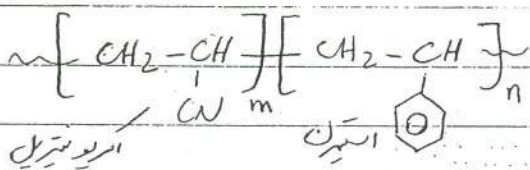 ~[ CH2 - CH ]m [ CH2 - CH ]n ~
CN
اکریلونیتریل استیرن